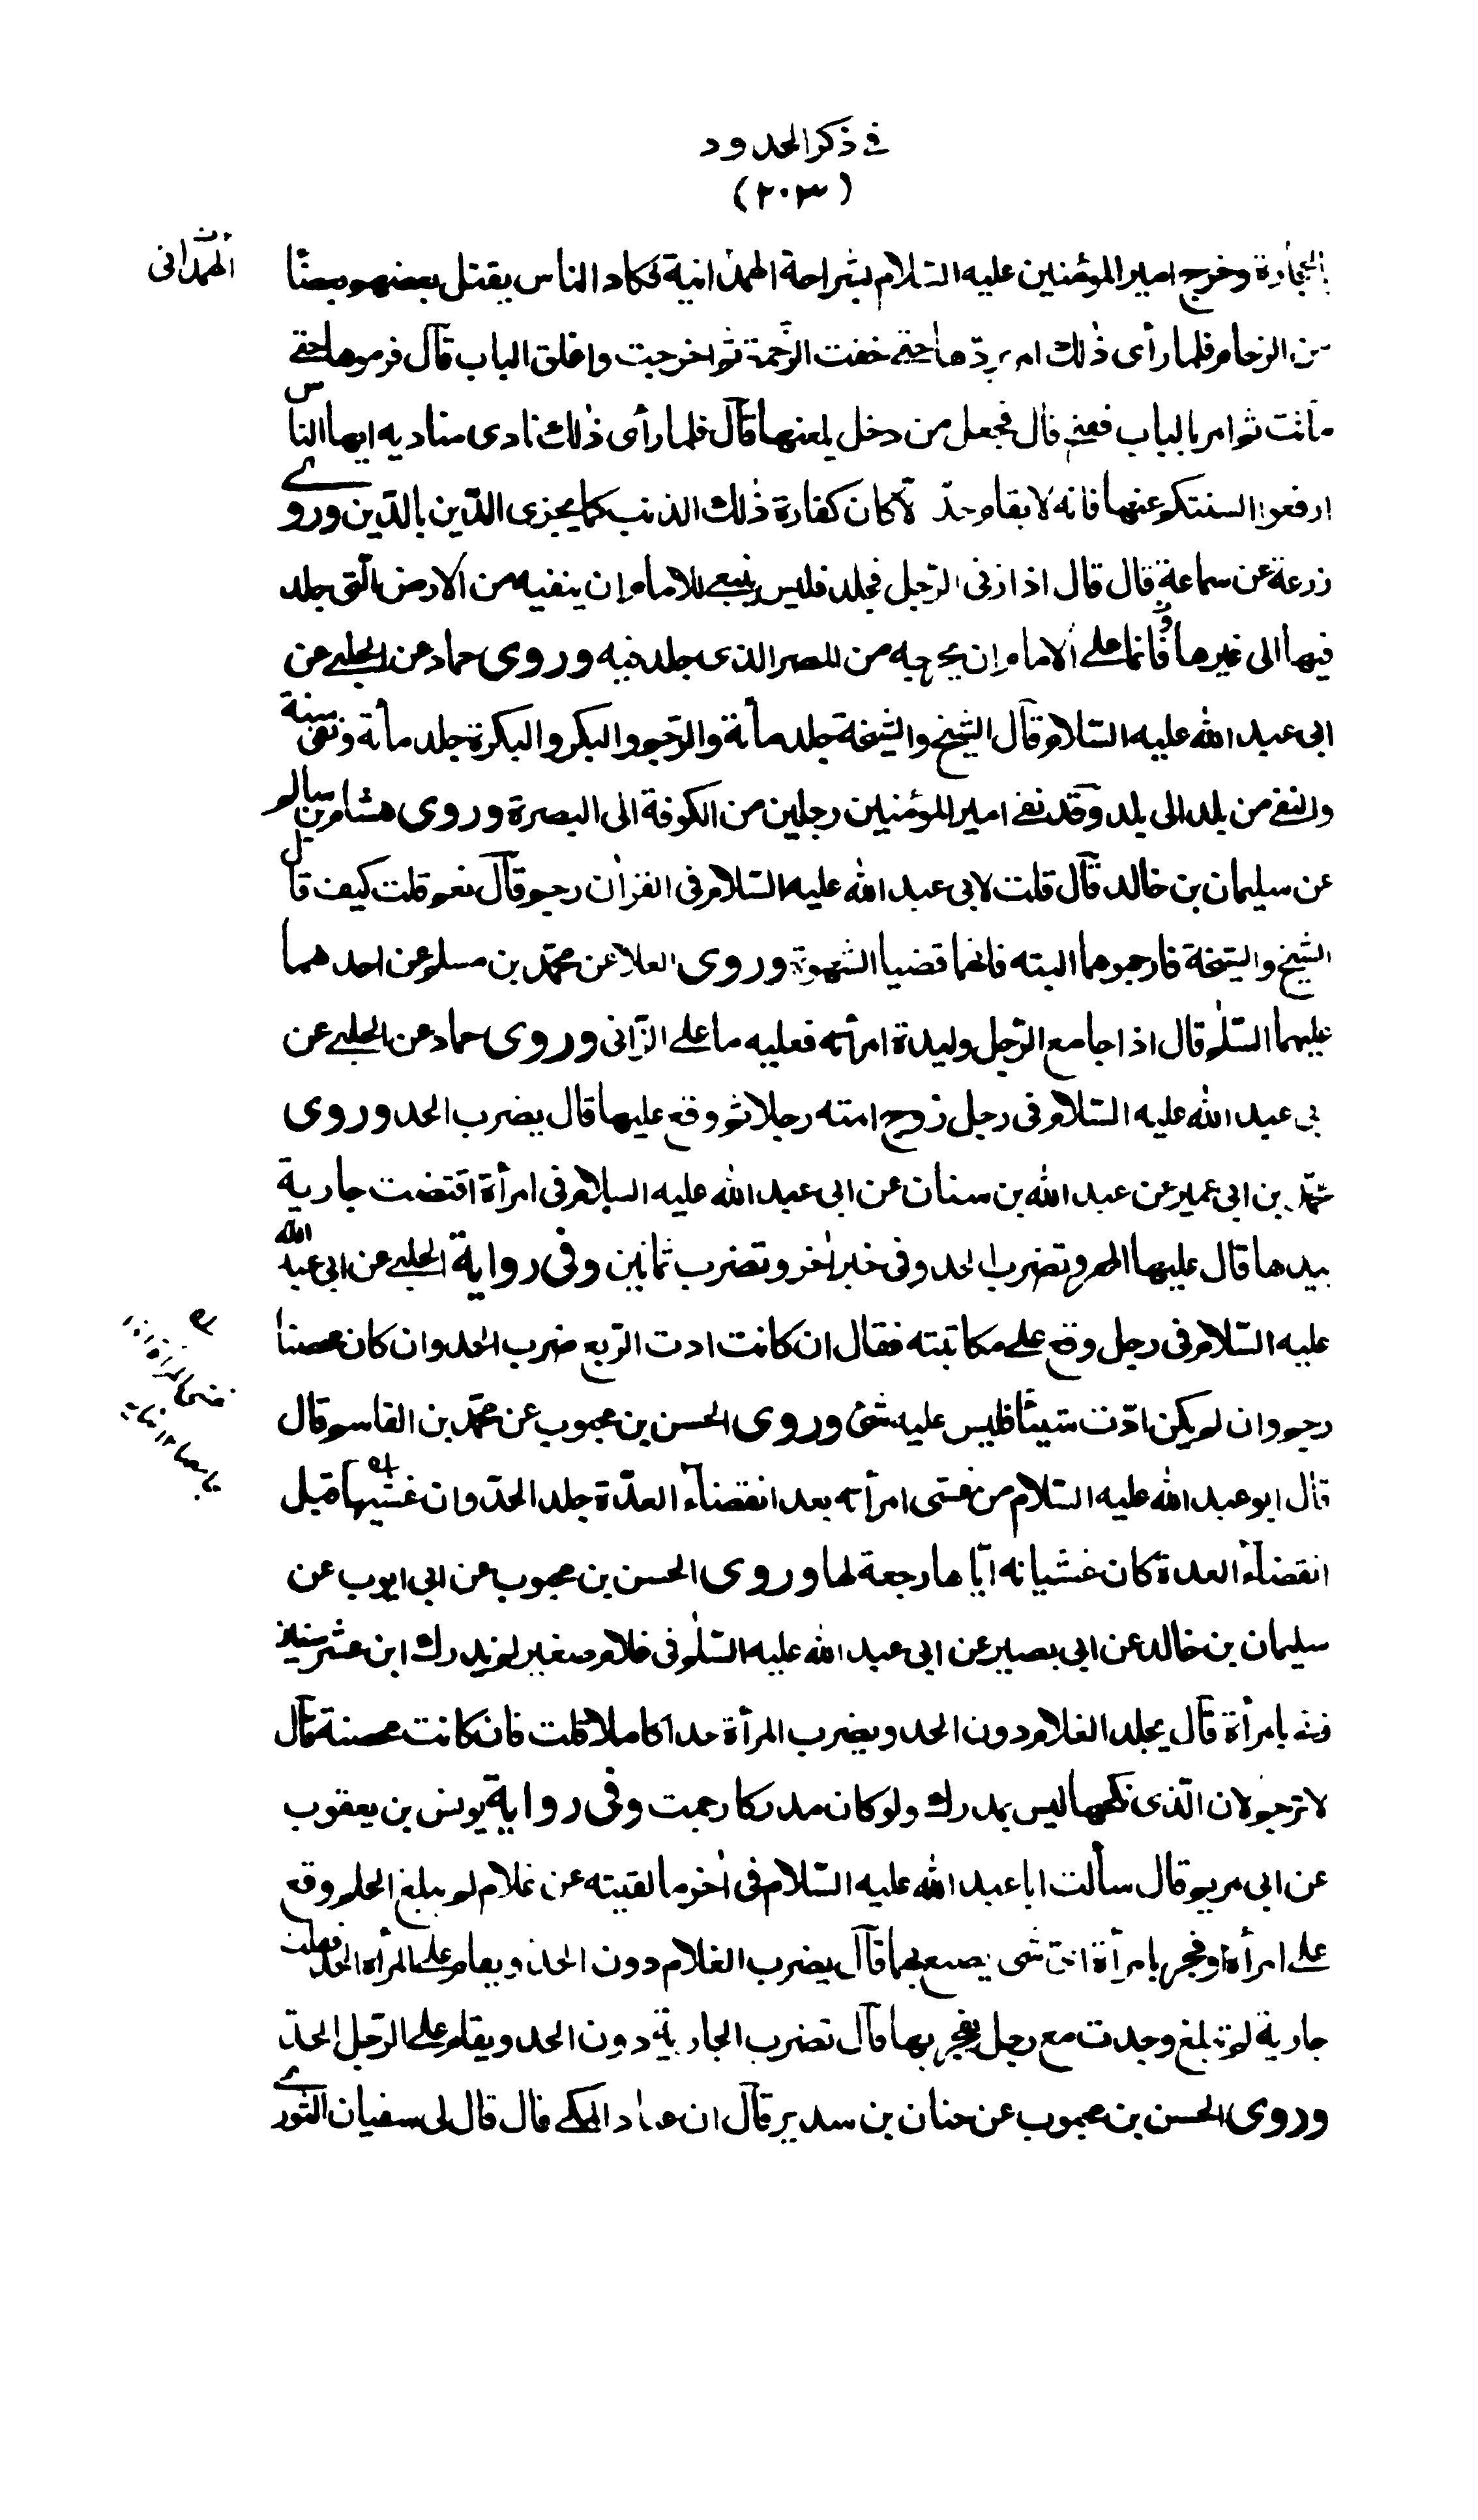 في ذكر الحدود
(٢٠٣)
الحجارة وخرج امير المؤمنين عليه السّلام بشراحة الهمدانية فكاد الناس يقتل بعضهم بعضًا
الهمداني
من الزحام فلما رأى ذٰلك امر بردّها حتى خفت الزّحمة ثم اخرجت واغلق الباب قال فرموها حتى
ماتت ثم امر بالباب ففتح قال فجعل من دخل يلعنها قال فلما رأى ذٰلك نادى مناديه ايها الناس
ارفعوا السنتكم عنها فانه لا يقام حدّ الّا كان كفارة ذٰلك الذنب كما يجزى الدّين بالدّين وروى
زرعة عن سماعة قال قال اذا زنى الرّجل فجلد فليس ينبغي للامام ان ينفيه من الارض الّتي جلد
فيها الى غيرها وانما على الامام ان يخرجه من المصر الذى جلد فيه وروى حماد عن الحلبي عن
ابى عبد الله عليه السّلام قال الشيخ والشيخة جلد مأنة والرّجم والبكر والبكرة جلد مأة ونفى سنة
والنفى من بلد الى بلد وقد نفى امير المؤمنين رجلين من الكوفة الى البصرة وروى هشام بن سالم
عن سليمان بن خالد قال قلت لابى عبد الله عليه السّلام فى القرأن رجم قال نعم قلت كيف قال
الشيخ والشيخة فارجموهما البته فانهما قضيا الشهوة وروى العلا عن محمّد بن مسلم عن احدهما
عليهما السّلم قال اذا جامع الرّجل وليدة امرأته فعليه ما على الزّانى وروى حماد عن الحلبي عن
ابى عبد الله عليه السّلام فى رجل زوج امته رجلا ثم وقع عليها قال يضرب الحد وروى
محمّد بن ابى عمير عن عبد الله بن سنان عن ابى عبد الله عليه السلام فى امرأة اقتضت جارية
بيدها قال عليها المهر وتضرب الحد وفى خبر اٰخر وتضرب ثمانين وفى رواية الحلبي عن ابى عبد الله
عليه السّلام فى رجل وقع على مكاتبته فقال ان كانت ادت الرّبع ضرب الحد وان كان محصنا
رجم وان لم يكن ادّت شيئا فليس عليه شئ وروى الحسن بن محبوب عن محمّد بن القاسم قال
قال ابو عبد الله عليه السّلام من غشى امرأته بعد انقضاء العدّة جلد الحدّ وان غشيها قبل
انقضاء العدة كان غشيانه ايّاها رجعة لها وروى الحسن بن محبوب عن ابى ايوب عن
سليمان بن خالد عن ابى بصير عن ابى عبد الله عليه السّلم فى غلام صغير لم يدرك ابن عشر سنين
زنى بامرأة قال يجلد الغلام دون الحد ويضرب المرأة حدا كاملا قلت فان كانت محصنة قال
لا ترجم لان الّذى نكحها ليس بمدرك ولو كان مدركا رجمت وفى رواية يونس بن يعقوب
عن ابى مريم قال سألت ابا عبد الله عليه السّلام فى اٰخر ما لقيته عن غلام لم يبلغ الحلم وقع
على امرأة او فجر بامرأة اىّ شى يصنع بهما قال يضرب الغلام دون الحد ويقام على المرأة الحد فقلت
جارية لم تبلغ وجدت مع رجل يفجر بها قال تضرب الجارية دون الحد ويقام على الرّجل الحدّ
وروى الحسن بن محبوب عن حنان بن سدير قال ان عباد المكى قال قال لى سفيان الثورى